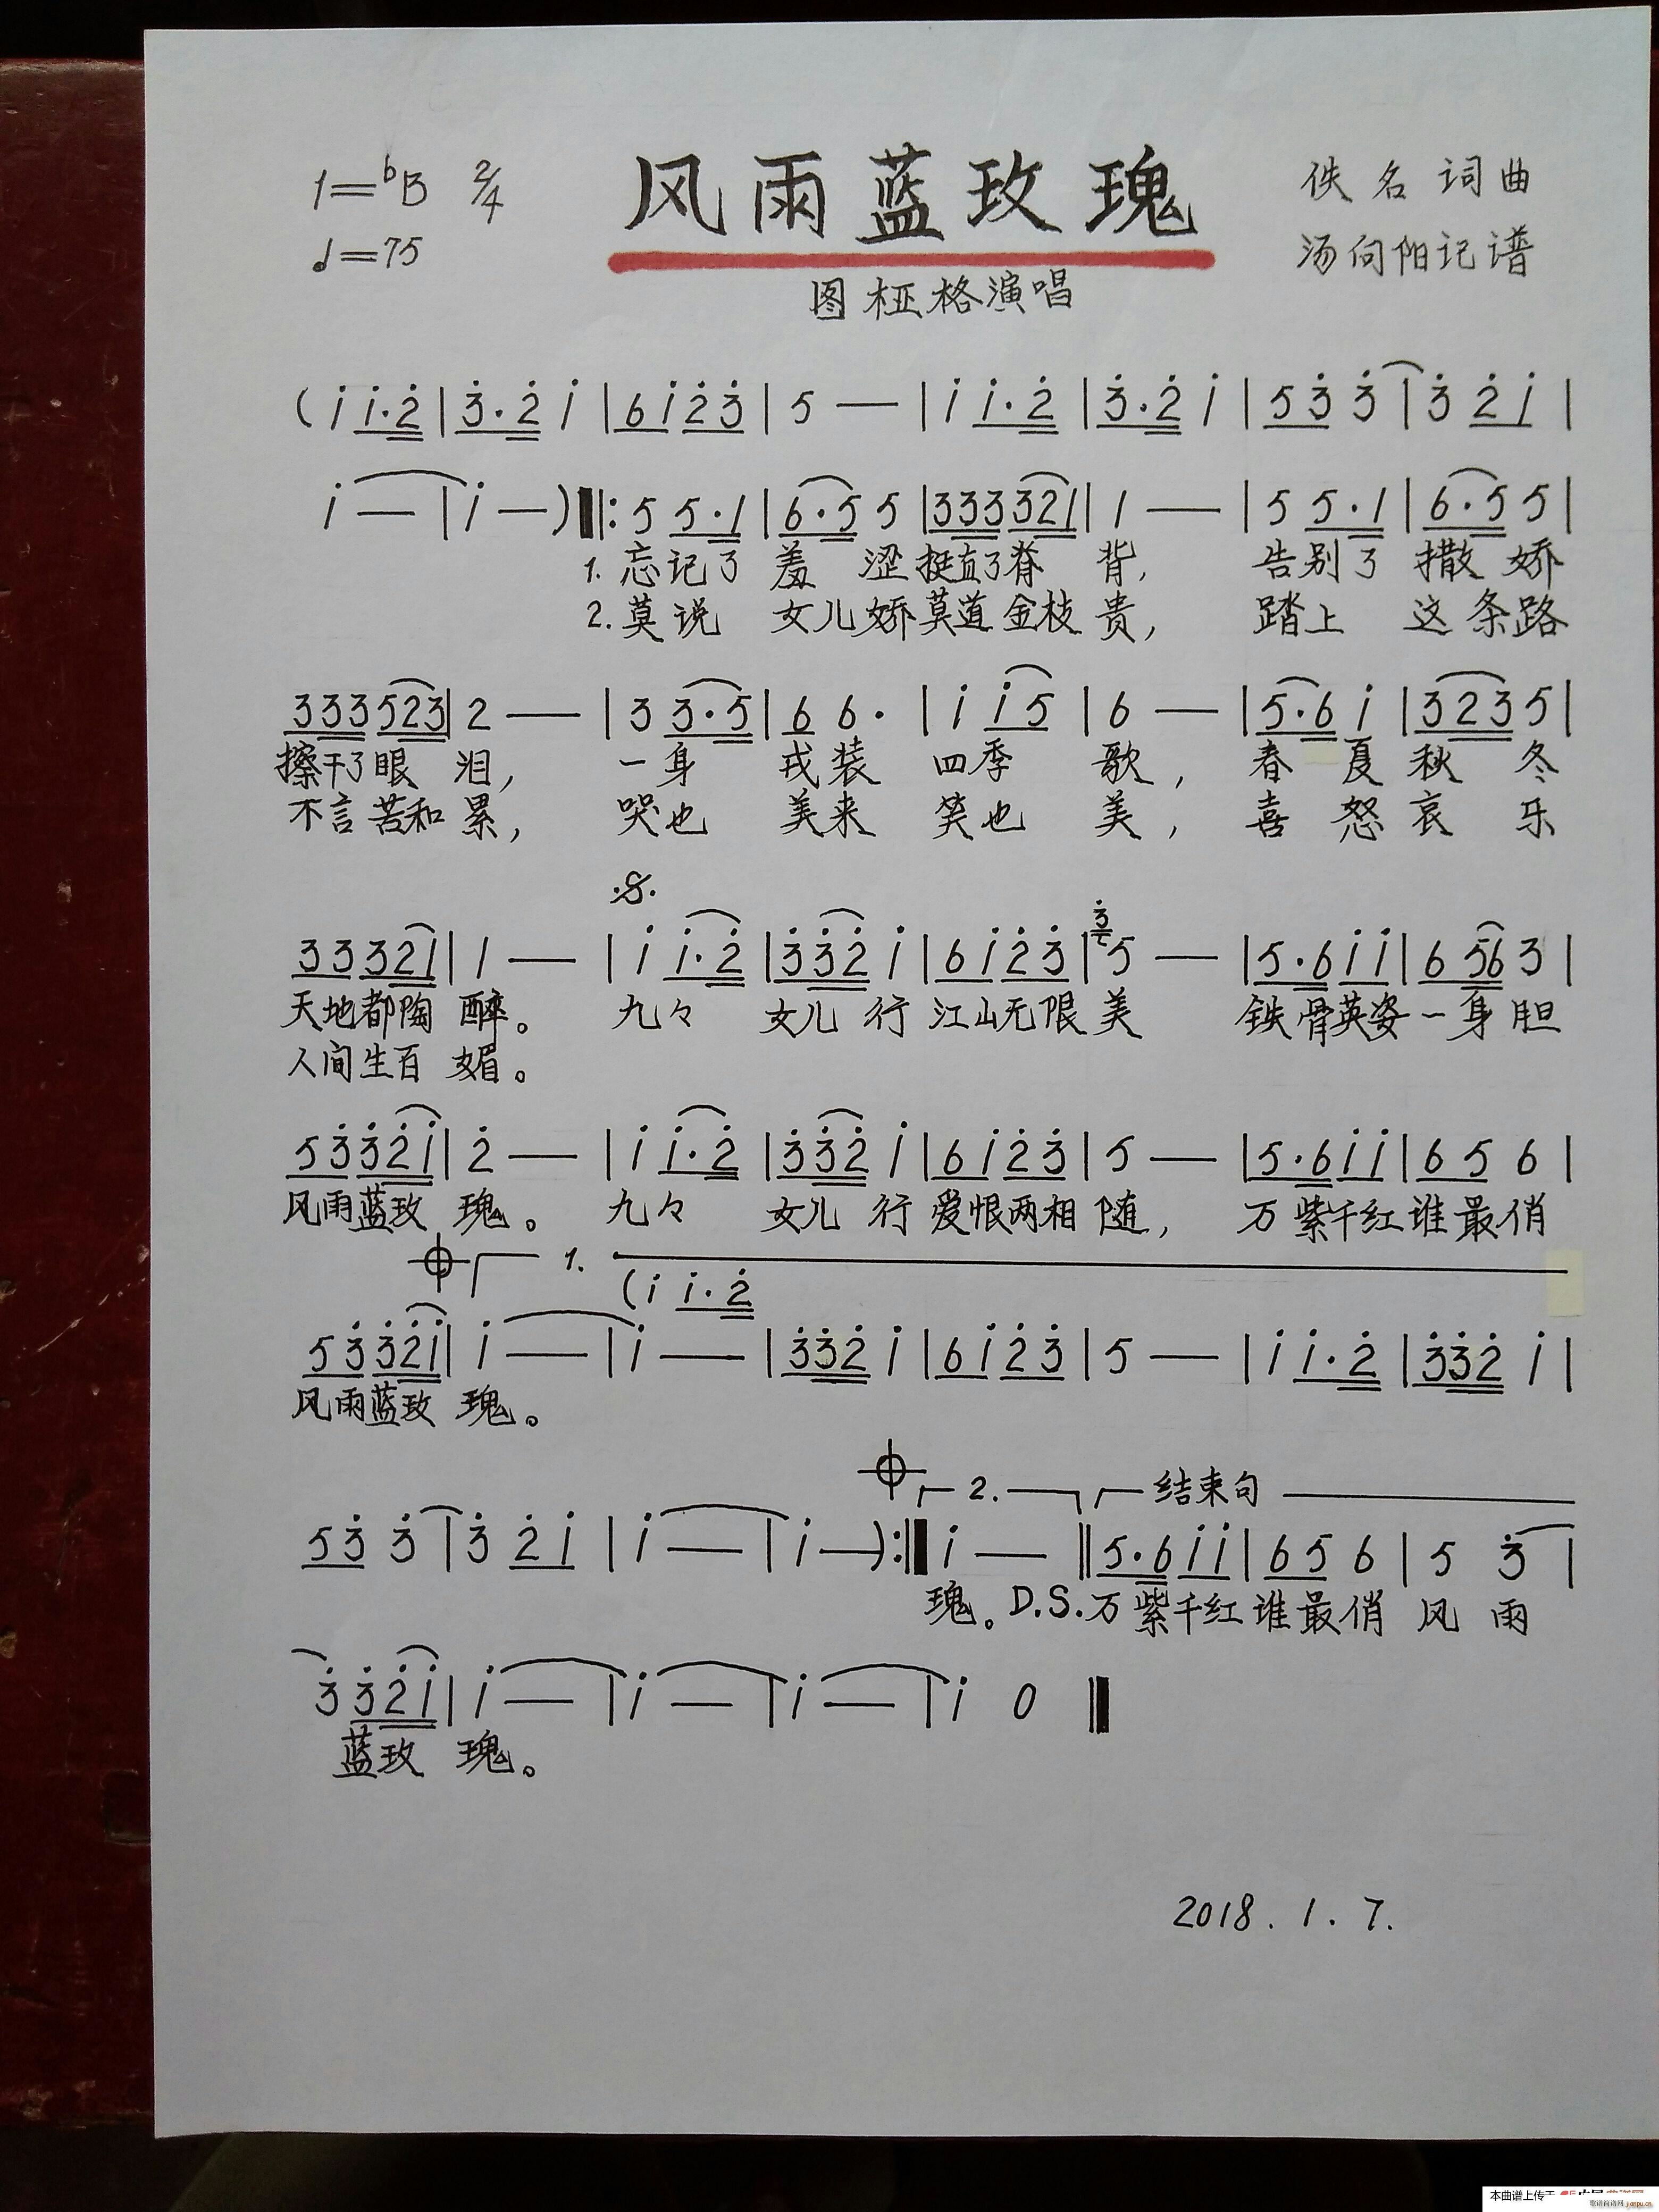 1=♭B 2/4 风雨蓝玫瑰 佚名词曲
♩=75 汤向阳记谱
图桠格演唱
( i i·2̇ | 3̇·2̇ i | 6 i 2̇ 3̇ | 5 — | i i·2̇ | 3̇·2̇ i | 5 3̇ 3̇ | 3̇ 2̇ i |
i — | i — ) ‖: 5 5·1 | 6·5 5 | 3 3 3 3 2 1 | 1 — | 5 5·1 | 6·5 5 |
1. 忘记了 羞 涩 挺直了脊 背, 告别了 撒 娇
2. 莫说 女儿娇 莫道金枝 贵, 踏上 这条路
3 3 3 5 2 3 | 2 — | 3 3·5 | 6 6· | i i 5 | 6 — | 5·6 i | 3 2 3 5 |
擦干了眼 泪, 一身 戎装 四季 歌, 春 夏 秋 冬
不言苦和 累, 哭也 美来 笑也 美, 喜 怒 哀 乐
𝄋
3 3 3 2 1 | 1 — | i i·2̇ | 3̇ 3̇ 2̇ i | 6 i 2̇ 3̇ | 3̇ 5 — | 5·6 i i | 6 5 6 3 |
天地都陶 醉。 九々 女儿 行 江山无限 美 铁骨英姿一身 胆
人间生百 媚。
5 3̇ 3̇ 2̇ i | 2̇ — | i i·2̇ | 3̇ 3̇ 2̇ i | 6 i 2̇ 3̇ | 5 — | 5·6 i i | 6 5 6 |
风雨蓝玫 瑰。 九々 女儿 行 爱恨两相 随, 万紫千红谁最俏
𝄌 1.
( i i·2̇
5 3̇ 3̇ 2̇ i | i — | i — | 3̇ 3̇ 2̇ i | 6 i 2̇ 3̇ | 5 — | i i·2̇ | 3̇ 3̇ 2̇ i |
风雨蓝玫 瑰。
𝄌 2. 结束句
5 3̇ 3̇ | 3̇ 2̇ i | i — | i — ) :‖ i — ‖ 5·6 i i | 6 5 6 | 5 3̇ |
瑰。D.S.万紫千红谁最俏 风 雨
3̇ 3̇ 2̇ i | i — | i — | i — | i 0 ‖
蓝玫 瑰。
2018.1.7.
本曲谱上传于
歌谱简谱网 jianpu.cn